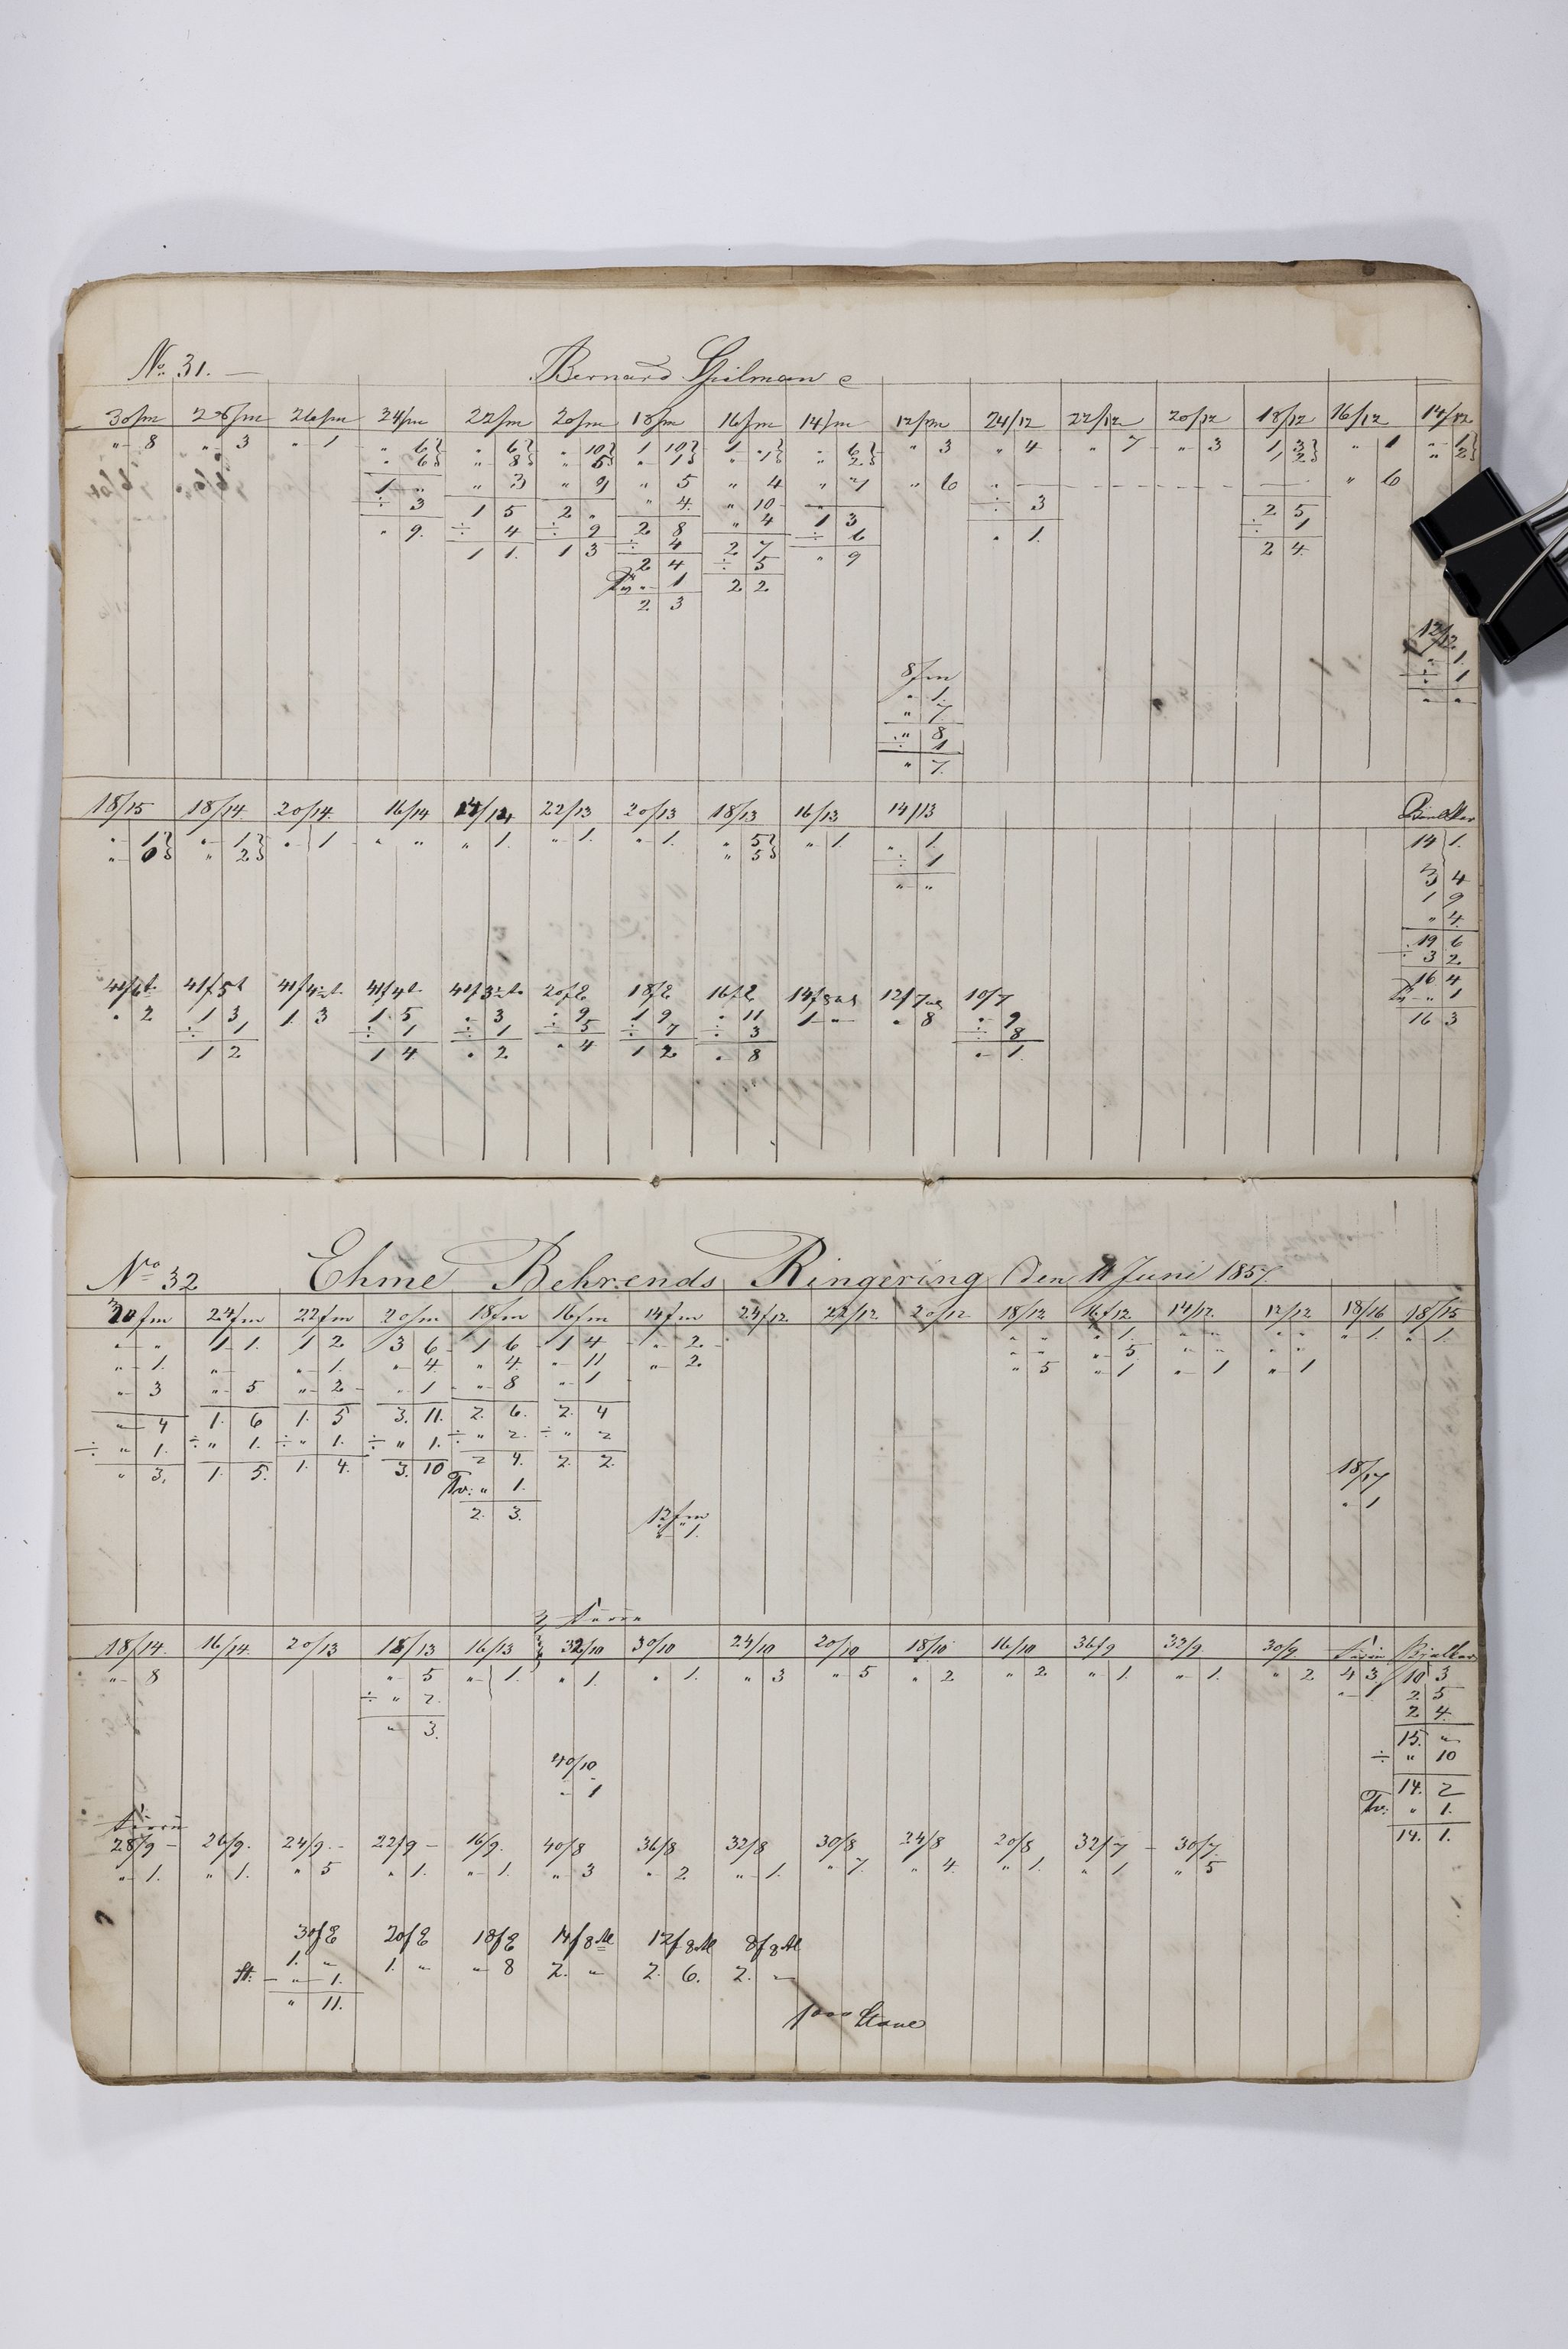 No. 31. — Bernard Spilman
30/m 28/m 26/m 24/m 22/m 20/m 18/m 16/m 14/m 12/m 24/12 22/12 20/12 18/12 16/12 14/12
" 8 " 3 " 1 " 6 " 6 " 10 1 10 1 " " 6 " 3 " 4 " 7 " 3 1 3 " 1 " 1
" 6 " 8 " 5 " 1 " 1 " 2 1 2 " 2
1 " " 3 " 9 " 5 " 4 " 7 " 6 " 6
÷ 3 1 5 2 " " 4 " 10 ÷ 3 2 5
" 9 ÷ 4 ÷ 9 2 8 " 4 1 3 " 1 ÷ 1
1 1 1 3 ÷ 4 2 7 ÷ 6 2 4
2 4 ÷ 5 " 9
" 1 2 2
2 3
12/12
" 1
÷ 1
" "
8/m
" 1
" 7
" 8
÷ 1
" 7
18/15 18/14 20/14 16/14 22/13 20/13 18/13 16/13 14/13
" 1 " 1 " 1 " " " 1 " 1 " 1 " 5 " 1 " 1 14 1
" 6 " 2 " 5 ÷ 1
" " 3 4
1 9
" 4
19 6
÷ 3 2
16 4
" 1
16 3
20f8 18f8 16f8 10/7
" 2 1 3 1 3 1 5 " 3 " 9 1 9 " 11 1 " " 8 " 9
÷ 1 ÷ 1 ÷ 1 ÷ 5 ÷ 7 ÷ 3 ÷ 8
1 2 1 4 " 2 " 4 1 2 " 8 " 1
No 32 Ehme Behrends Ringering Den 11 Juni 1857
24fm 22fm 20/m 18fm 16fm 14fm 24f12 22/12 20/12 18/12 16f12 14/12 12/12 18/16 18/15
" " 1 1 1 2 3 6 1 6 1 4 " 2 " " " 1 " " " " " 1 " 1
" 1 " " 1 " 4 " 4 " 11 " 2 " " " 5 " " " "
" 3 " 5 " 2 " 1 " 8 " 1 " 5 " 1 " 1 " 1
" 4 1 6 1 5 3 11 2 6 2 4
÷ " 1 ÷ " 1 ÷ " 1 ÷ " 1 ÷ " 2 ÷ " 2
" 3 1 5 1 4 3 10 2 4 2 2
" 1
2 3
18/17
" 1
12fm
" 1
18/14 16/14 20/13 18/13 16/13 32/10 30/10 24/10 20/10 18/10 16/10 36f9 32/9 30/9 Bjalker
" 8 " 5 " 1 " 1 " 1 " 3 " 5 " 2 " 2 " 1 " 1 " 2 4 3 10 3
÷ " 2 " 1 2 5
" 3 2 4
15 "
40/10 ÷ " 10
" 1 14 2
" 1
14 1
28/9 26/9 24/9 22/9 16/9 40/8 36/8 32/8 30/8 24/8 20/8 32/7 30/7
" 1 " 1 " 5 " 1 " 1 " 3 " 2 " 1 " 7 " 4 " 1 " 1 " 5
30f8 20f8 18f8
1 " 1 " " 8 2 " 2 6 2 "
" 1
" 11
1000 Stave